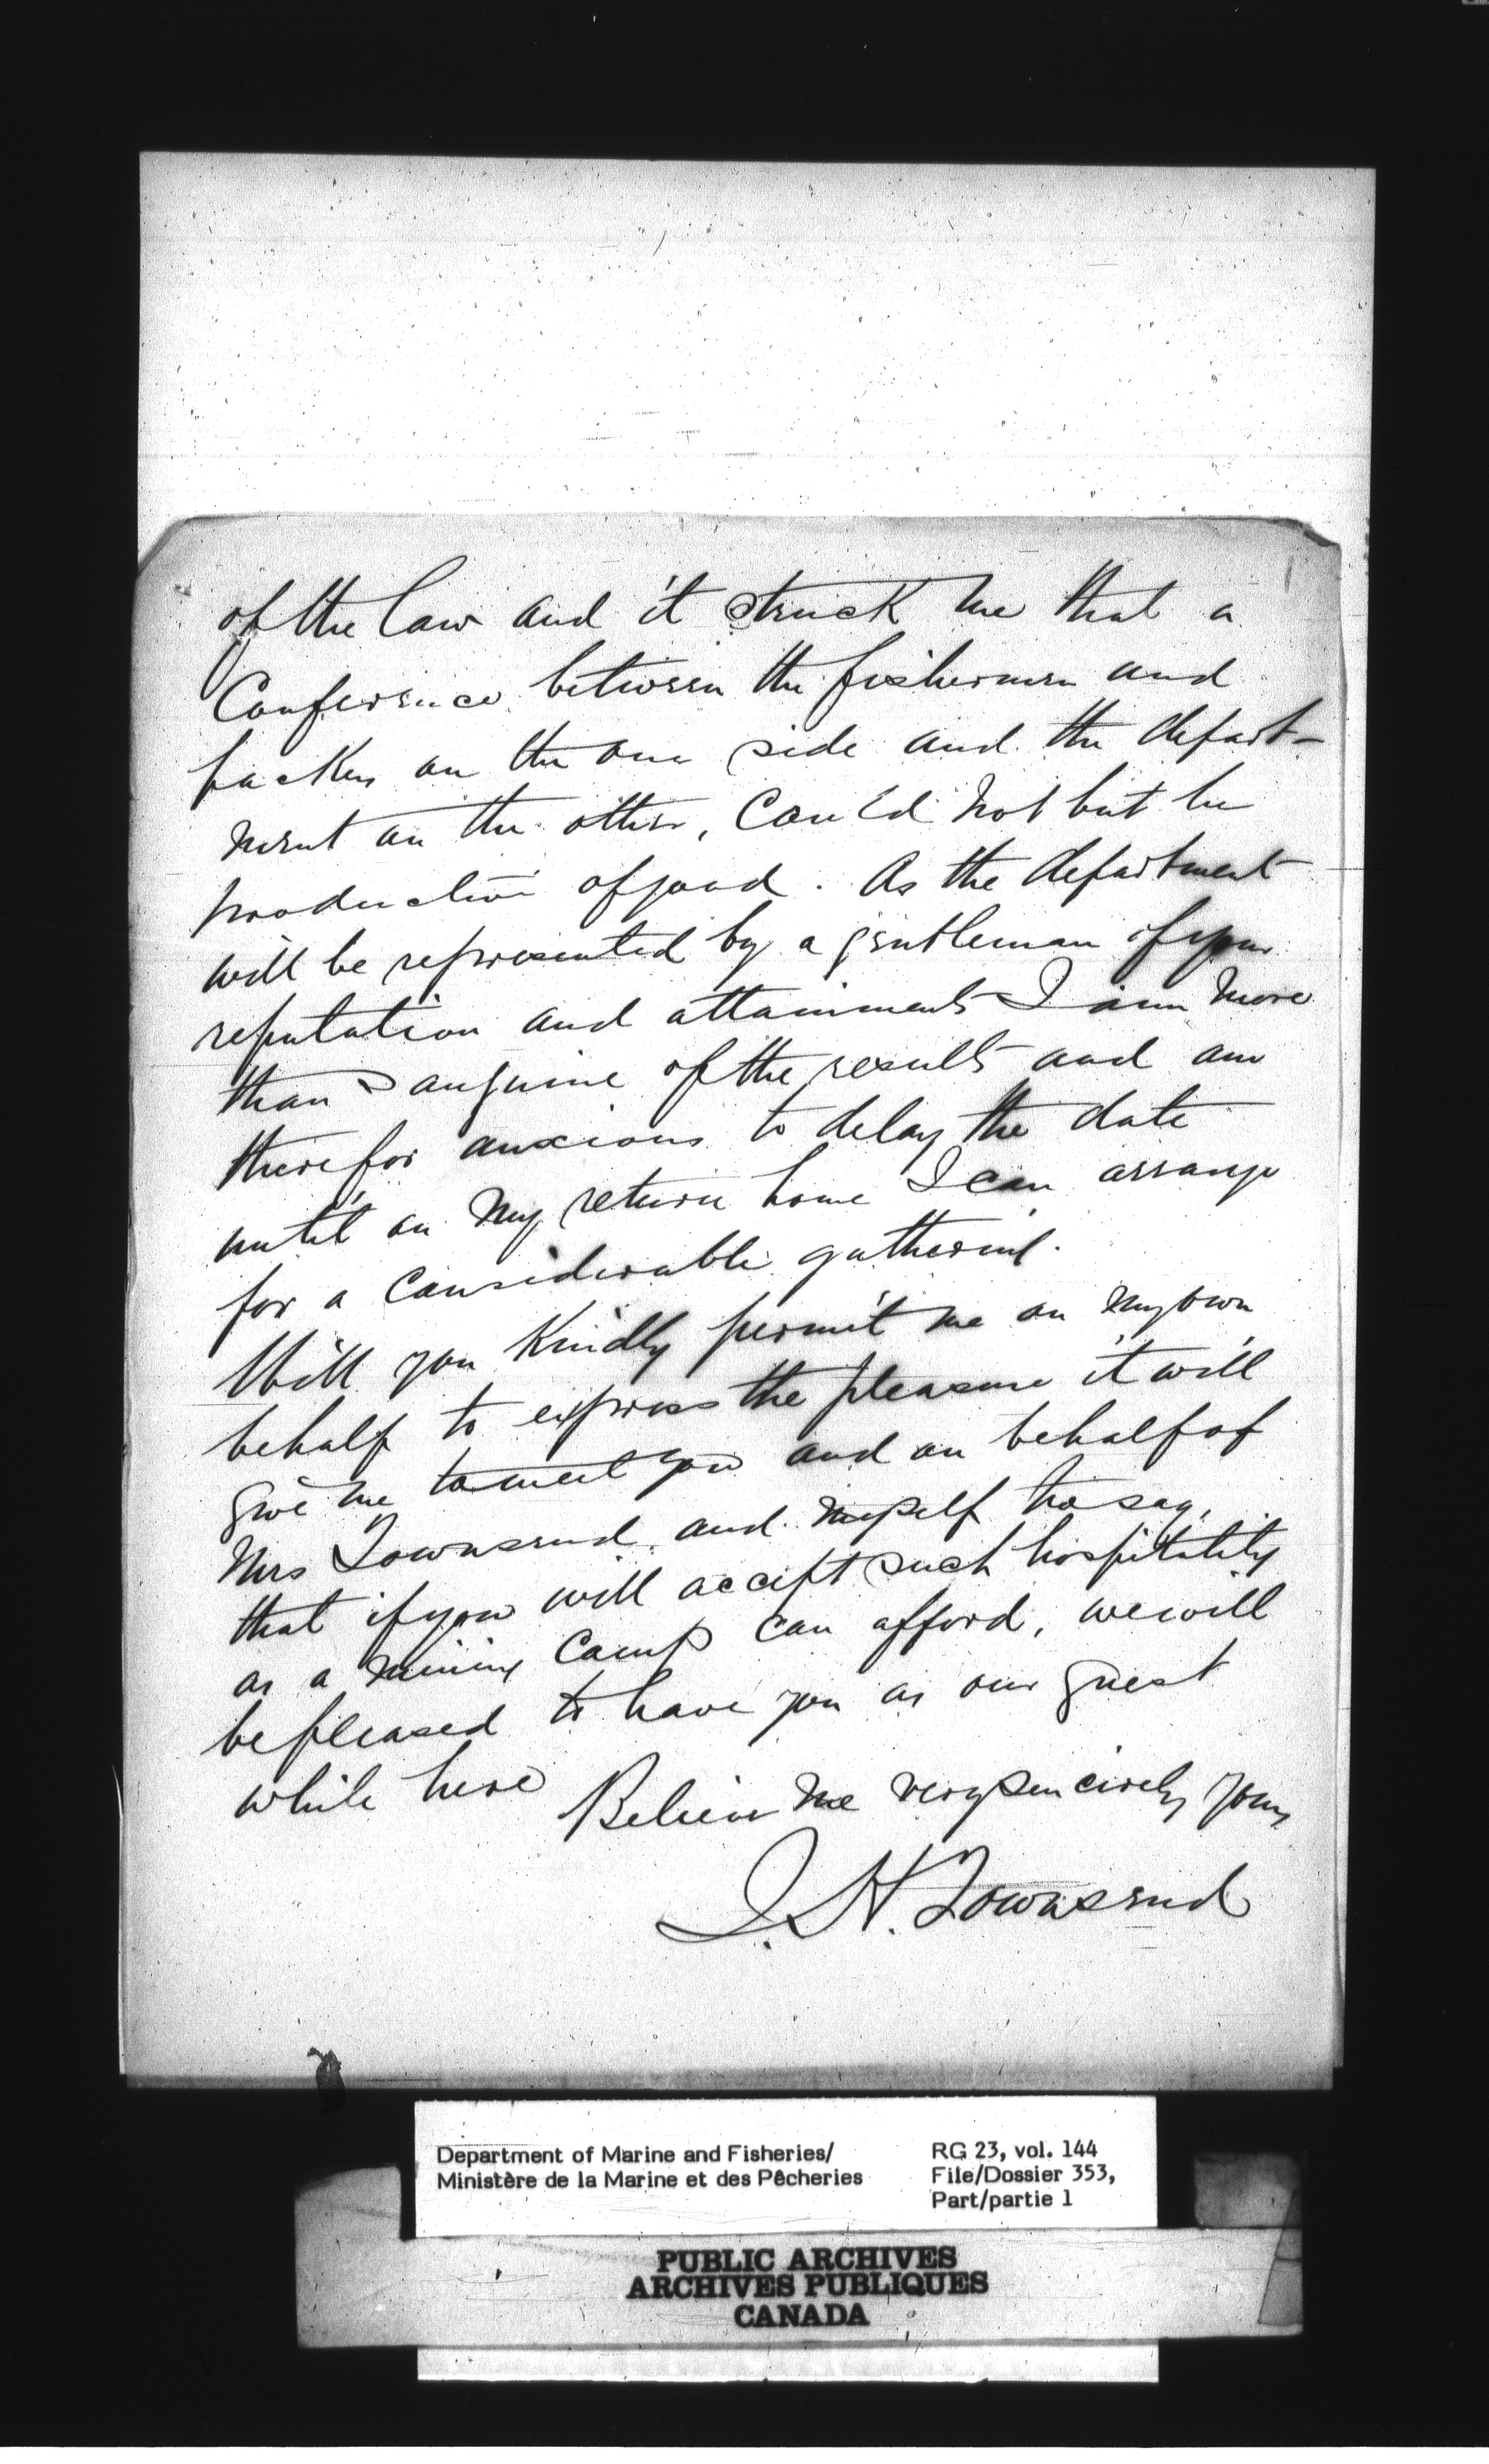 of the law and it struck me that a
Conference between the fishermen and
packers on the one side and the depart-
ment on the other, could not but be
productive of good. As the department
will be represented by a gentleman of your
reputation and attainments I am more
than sanguine of the results and am
therefor anxious to delay the date
until on my return home I can arrange
for a considerable gathering.
Will you kindly permit me on my own
behalf to express the pleasure it will
give me to meet you and on behalf of
Mrs Townsend and myself to say,
that if you will accept such hospitality
as a mining camp can afford, we will
be pleased to have you as our guest
while here
Believe me very sincerely yours
J. H. Townsend
Department of Marine and Fisheries/
Ministère de la Marine et des Pêcheries
RG 23, vol. 144
File/Dossier 353,
Part/partie 1
PUBLIC ARCHIVES
ARCHIVES PUBLIQUES
CANADA